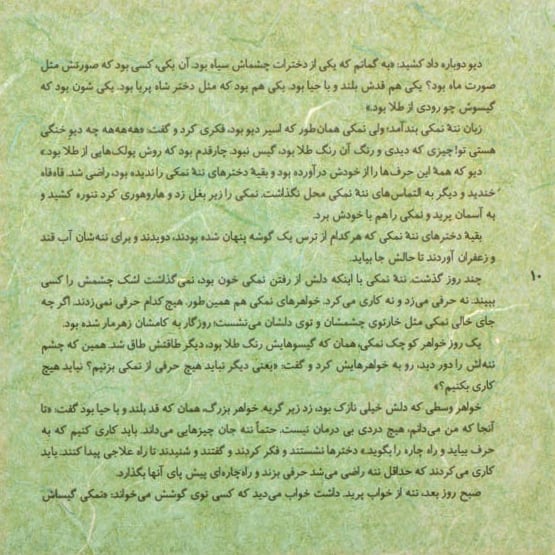 دیو دوباره داد کشید: «به گمانم که یکی از دخترات چشماش سیاه بود. آن یکی، کسی بود که صورتش مثل
صورت ماه بود؟ یکی هم قدش بلند و با حیا بود. یکی هم بود که مثل دختر شاه پریا بود. یکی شون بود که
گیسوش چو رودی از طلا بود.»
زبان ننهٔ نمکی بندآمد؛ ولی نمکی همان‌طور که اسیر دیو بود، فکری کرد و گفت: «هه‌هه‌هه چه دیو خنگی
هستی تو! چیزی که دیدی و رنگ آن رنگ طلا بود، گیس نبود. چارقدم بود که روش پولک‌هایی از طلا بود.»
دیو که همهٔ این حرف‌ها را از خودش درآورده بود و بقیهٔ دخترهای ننهٔ نمکی را ندیده بود، راضی شد. قاه‌قاه
خندید و دیگر به التماس‌های ننهٔ نمکی محل نگذاشت. نمکی را زیر بغل زد و هاروهوری کرد تنوره کشید و
به آسمان پرید و نمکی را هم با خودش برد.
بقیهٔ دخترهای ننهٔ نمکی که هرکدام از ترس یک گوشه پنهان شده بودند، دویدند و برای ننه‌شان آب قند
و زعفران آوردند تا حالش جا بیاید.
چند روز گذشت. ننهٔ نمکی با اینکه دلش از رفتن نمکی خون بود، نمی‌گذاشت اشک چشمش را کسی
ببیند. نه حرفی می‌زد و نه کاری می‌کرد. خواهرهای نمکی هم همین‌طور. هیچ‌کدام حرفی نمی‌زدند. اگر چه
جای خالی نمکی مثل خار توی چشمشان و توی دلشان می‌نشست؛ روزگار به کامشان زهرمار شده بود.
یک روز خواهر کوچک نمکی، همان که گیسوهایش رنگ طلا بود، دیگر طاقتش طاق شد. همین که چشم
ننه‌اش را دور دید، رو به خواهرهایش کرد و گفت: «یعنی دیگر نباید هیچ حرفی از نمکی بزنیم؟ نباید هیچ
کاری بکنیم؟»
خواهر وسطی که دلش خیلی نازک بود، زد زیر گریه. خواهر بزرگ، همان که قد بلند و با حیا بود گفت: «تا
آنجا که من می‌دانم، هیچ دردی بی درمان نیست. حتماً ننه جان چیزهایی می‌داند. باید کاری کنیم که به
حرف بیاید و راه چاره را بگوید.» دخترها نشستند و فکر کردند و گفتند و شنیدند تا راه علاجی پیدا کنند. باید
کاری می‌کردند که حداقل ننه راضی می‌شد حرفی بزند و راه‌چاره‌ای پیش پای آنها بگذارد.
صبح روز بعد، ننه از خواب پرید. داشت خواب می‌دید که کسی توی گوشش می‌خواند: «نمکی گیساش
۱۰